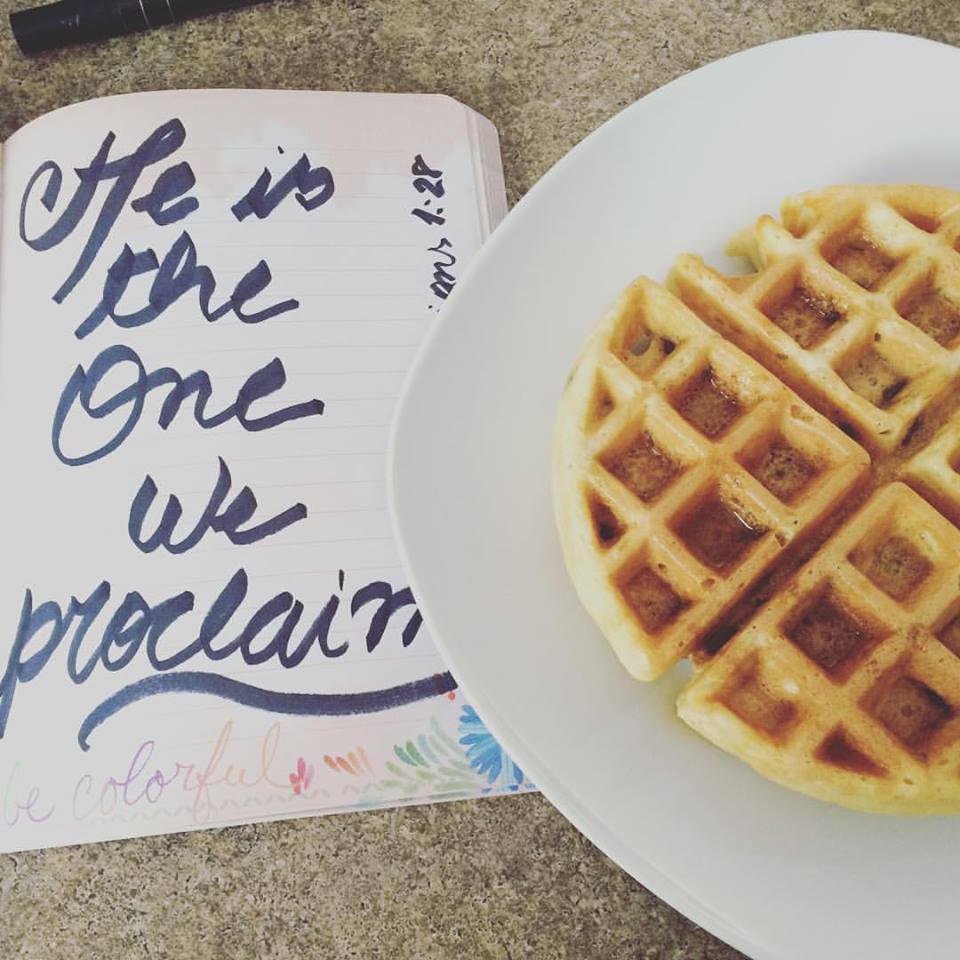 He is
the
One
we
proclaim
ians 1:28
be colorful